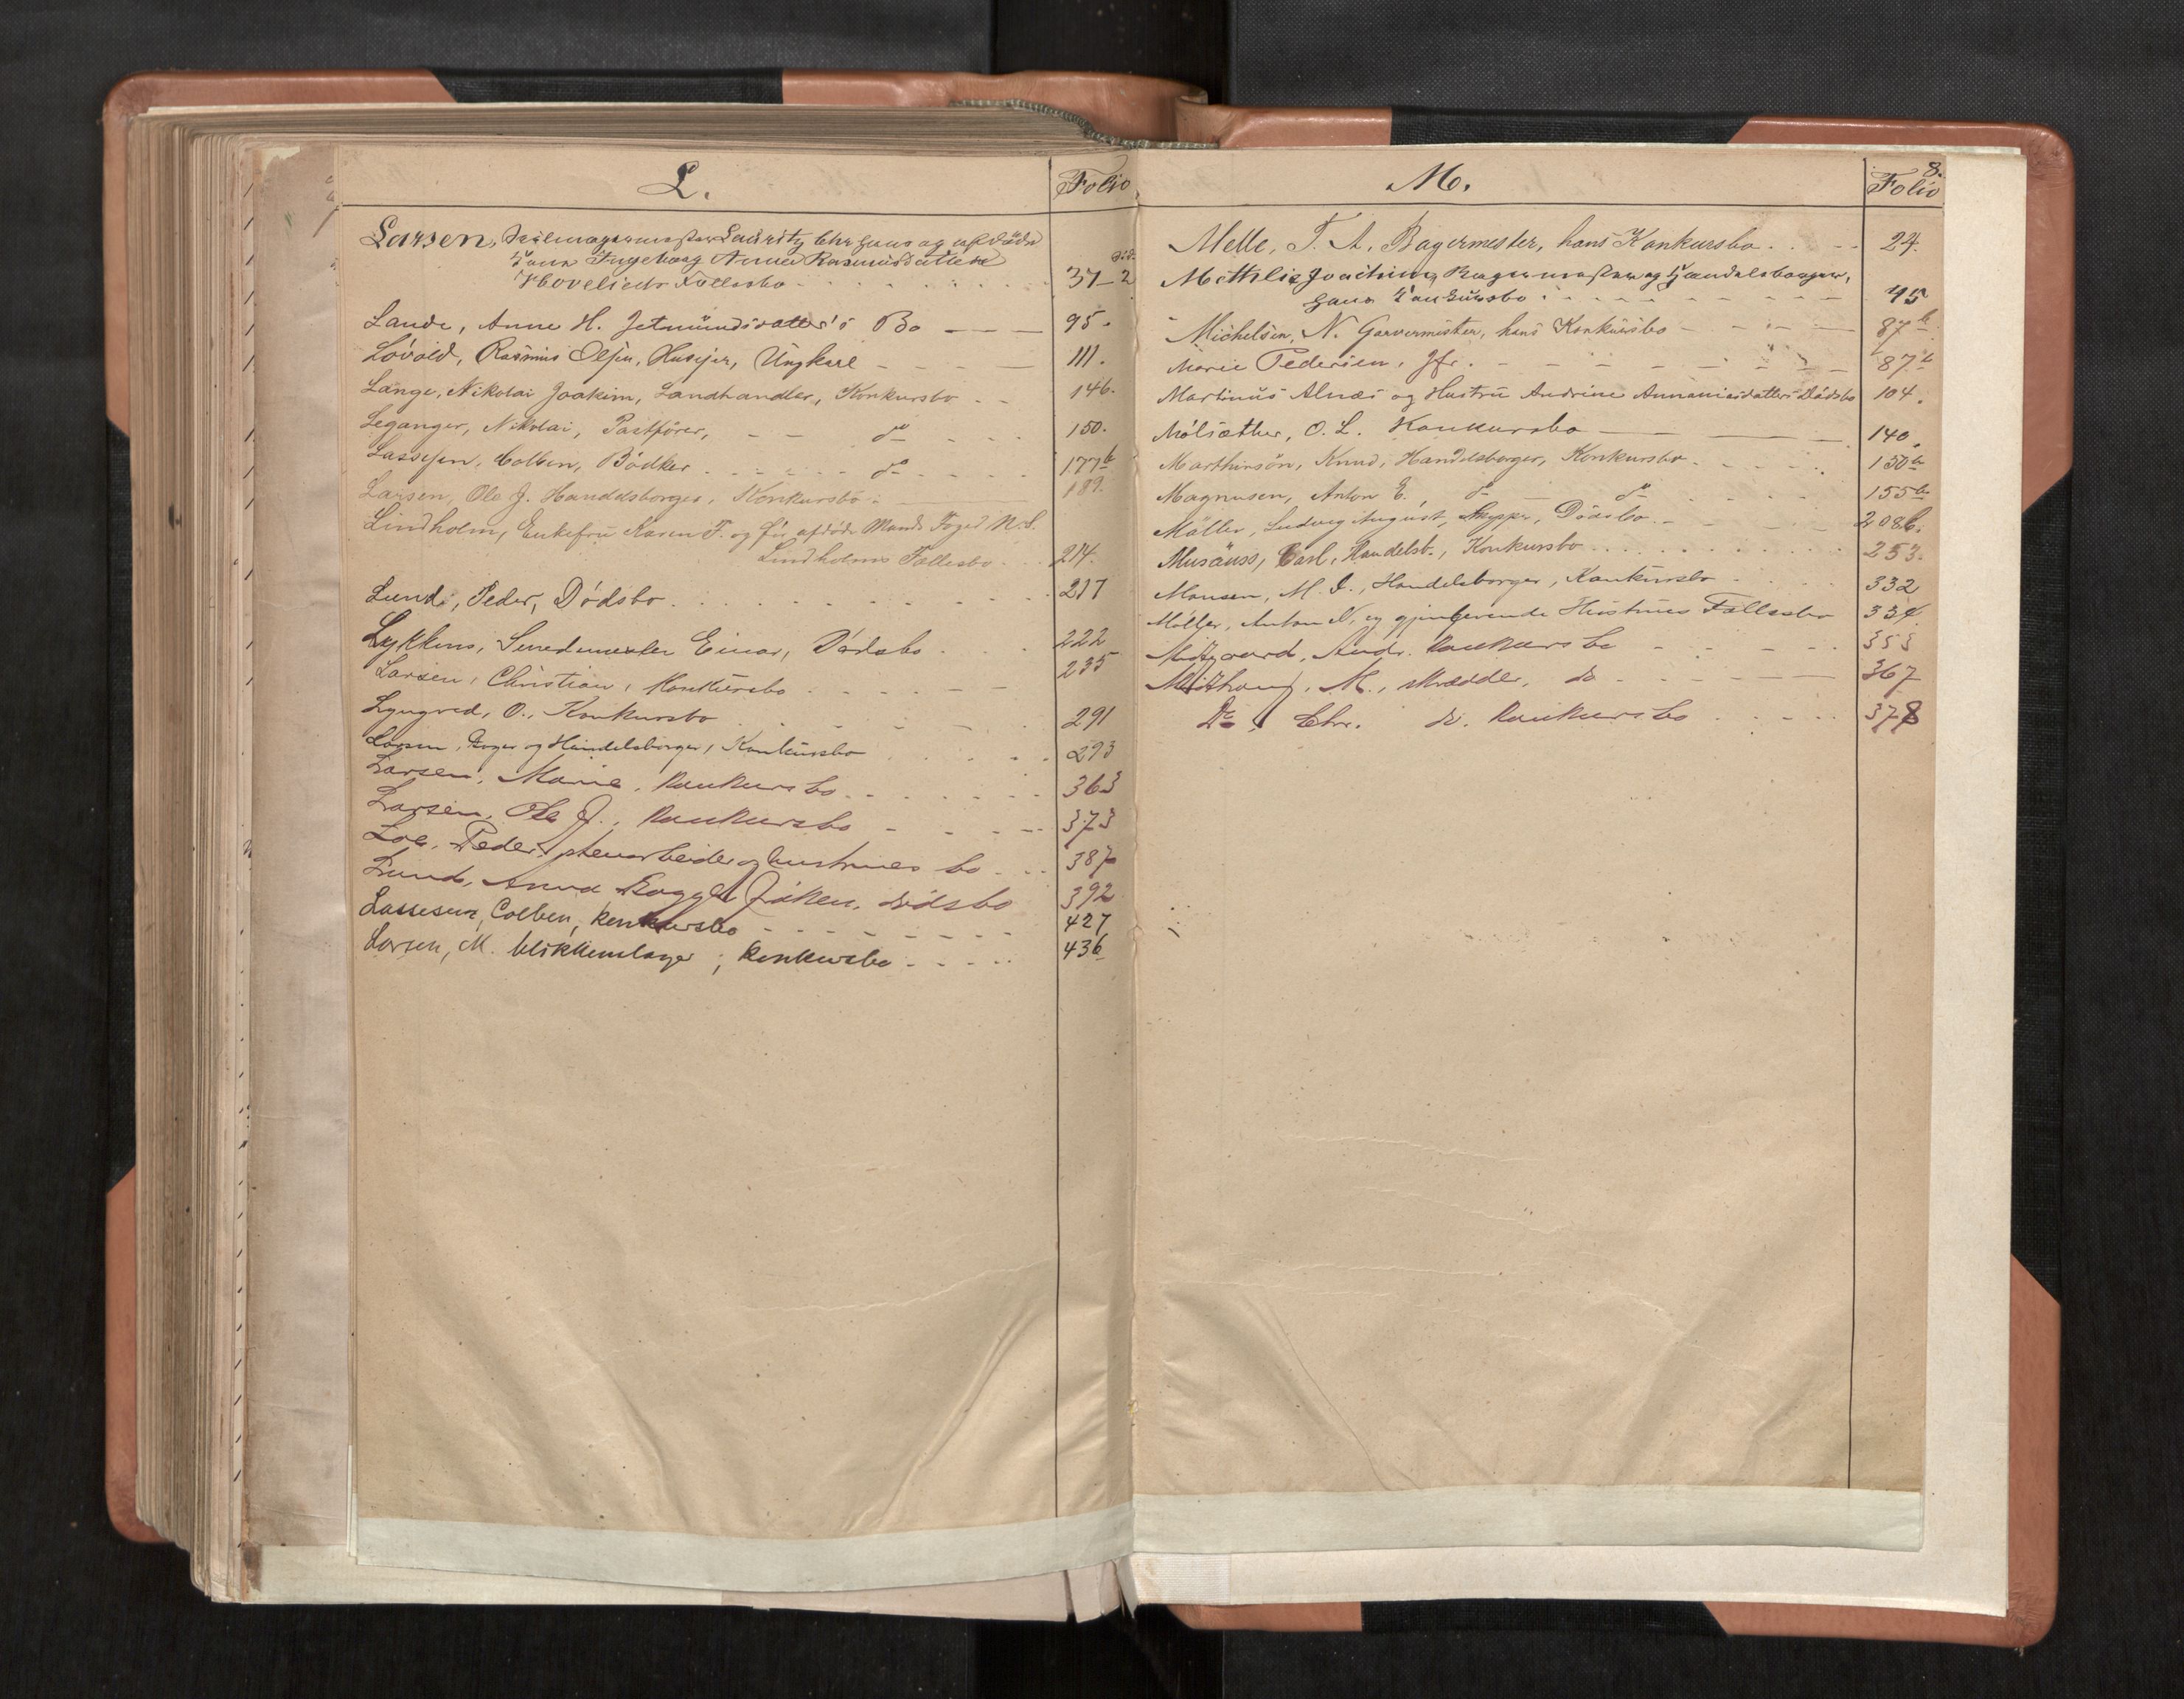 L. Folio
Larsen, Seilmagermester Lauritz Chr hans og afdøde
Kone Ingeborg Anne Rasmusdatter
Hovelieds Fællesbo 37-2
Lande, Anne H. Jetmundsdatter's Bo 95.
Løvold, Rasmus Olsen, Huseier, Ungkarl 111.
Lange, Nikolai Joakim, Landhandler, Konkursbo 146.
Leganger, Nikolai, Postfører, do 150.
Lassesen, Colben, Bødker do 177b
Larsen, Ole J. Handelsborger, Konkursbo 189.
Lindholm, Enkefru Karen F. og før afdøde Mands Foged N. S.
Lindholms Fællesbo 214.
Lund, Peder, Dödsbo 217
Lykken, Einar, Dødsbo 222
Larsen, Christian, Konkursbo 235
Lyngved, O., Konkursbo 291
Larsen, Bager og Handelsborger, Konkursbo 293
Larsen, Marie, Konkursbo 363
Larsen, Ole J., Konkursbo 373
Loe, Peder, stenarbeider og hustrues bo 387
Lund, Anna frøken, dødsbo 392
Lassesen, Colben, konkursbo 427
Larsen, M. blikkenslager, konkursbo 436
M. 8. Folio
Melle, T. A. Bagermester, hans Konkursbo 24.
Methlie Joachim, Bagermester og Handelsborger,
hans Konkursbo 45
Michelsen, N. Garvermester, hans Konkursbo 87b
Marie Pedersen, Jfr. 87b
Martinus Alnæs og Hustru Andrine Annaniasdatters Dødsbo 104.
Mølsæther, O. L. Konkursbo 140.
Marthinsön, Knud, Handelsborger, Konkursbo 150b
Magnusen, Anton E., do do 155b
Möller, Ludvig August, Skipper, Dödsbo 208b.
Musäuss, Carl, Handelsb., Konkursbo 253.
Monsen, M. J., Handelsborger, Konkursbo 332
Møller, Anton N. og gjenlevende Hustrues Fællesbo 334.
Midtgaard, Andr. Konkursbo 353
Midthaug, M., skrædder, do 367
Do, Chr. do. Konkursbo 378